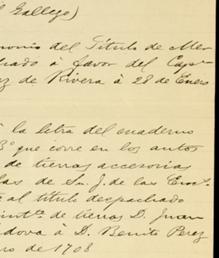 l Gallego)
onio del Título de Mer
uado à favor del Cap.n
ez de Rivera à 28 de Enero
à la letra del cuaderno
3º que corre en los autos
de tierras accesorias
las de Sn. J. de las
e al título despachado
de tierras D. Juan
dova à D. Benito Perez
ro de 1708